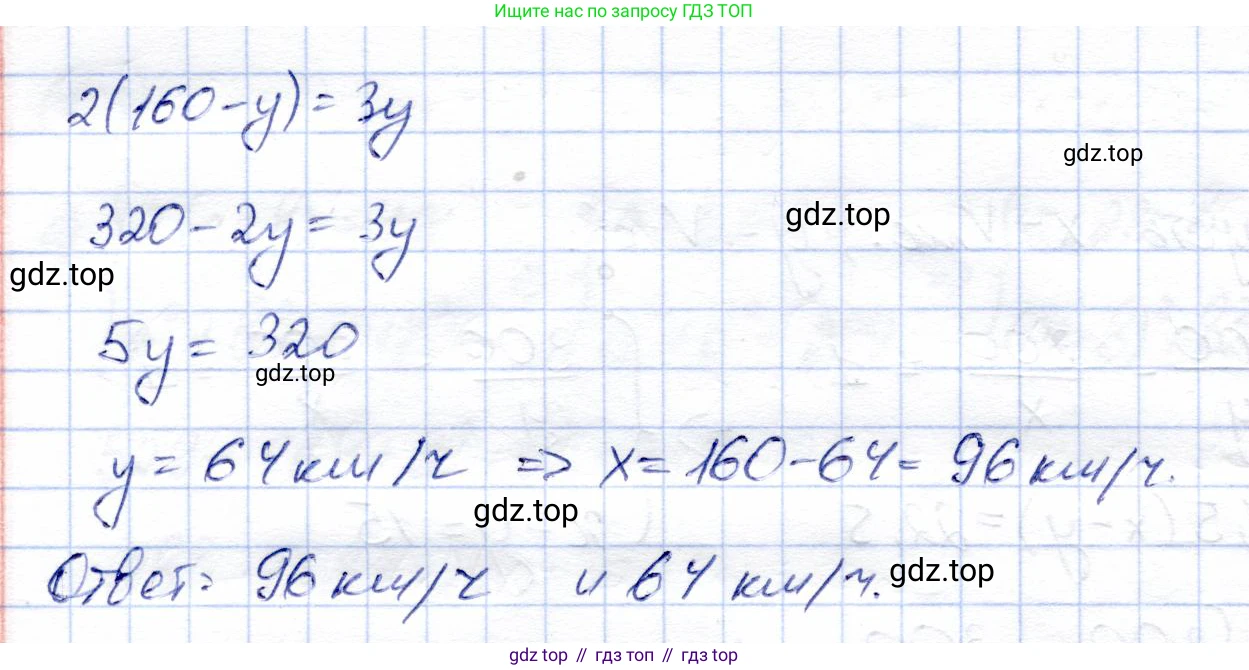 Ищите нас по запросу ГДЗ ТОП
2(160-y)= 3y
gdz.top
320-2y= 3y
gdz.top
gdz.top
5y= 320
gdz.top
y= 64км/ч => x=160-64= 96км/ч.
gdz.top
Ответ: 96км/ч и 64 км/ч.
gdz.top
gdz top // гдз топ // гдз top